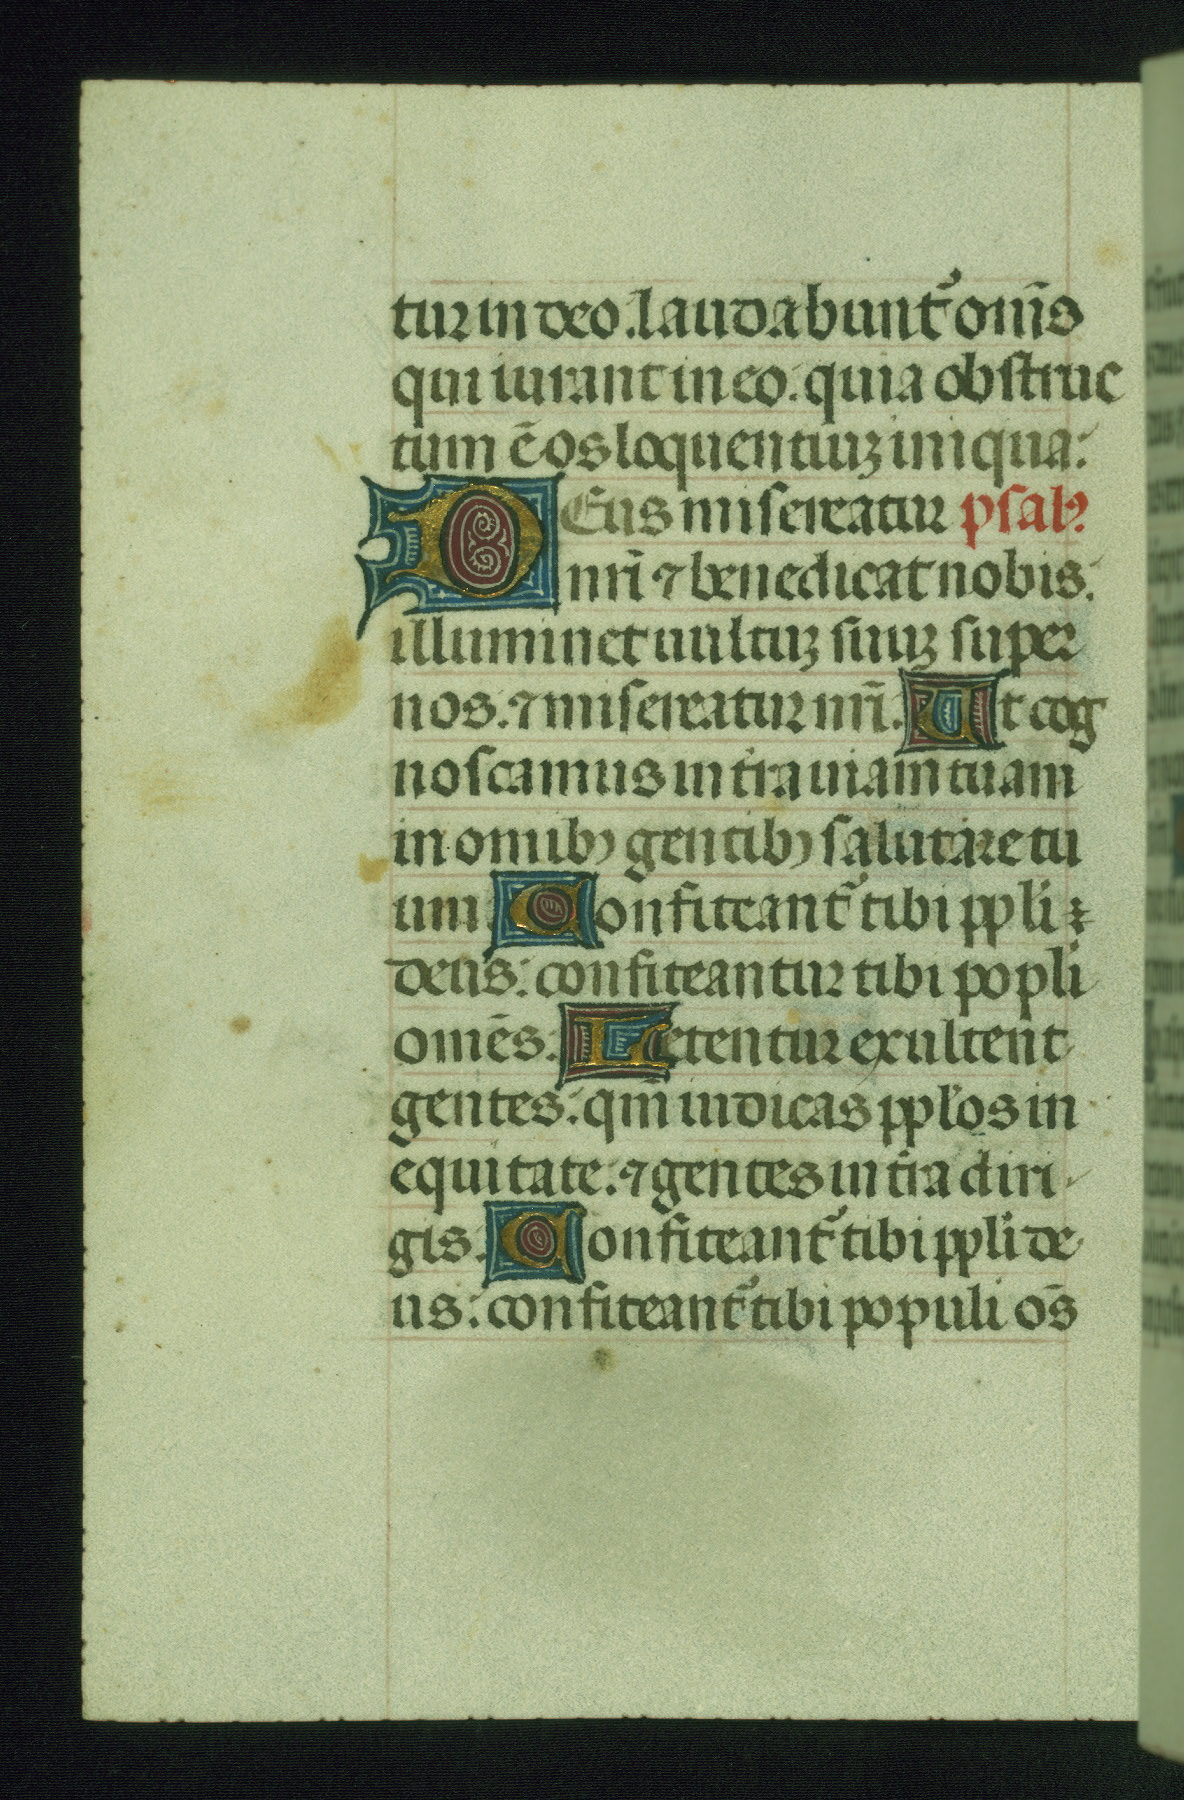 tur in deo. laudabunt᷑ om̄s
qui iurant in eo. quia obstruc
tum ē os loquentiuꝫ iniqua:
DEus misereatur psalꝰ
nr̄i ⁊ benedicat nobis.
illuminet uultuꝫ suuꝫ super
nos. ⁊ misereatur nr̄i. Ut cog
noscamus in tr̄a uiam tuam
in omībꝫ gentibꝫ salutare tu
um. Confiteant᷑ tibi ppl̓i
deus: confiteantur tibi popl̓i
omēs. Letentur exultent
gentes: qm̄ iudicas ppl̓os in
equitate. ⁊ gentes in tr̄a diri
gis. Confiteant᷑ tibi ppl̓i de
us: confiteant᷑ tibi populi oēs